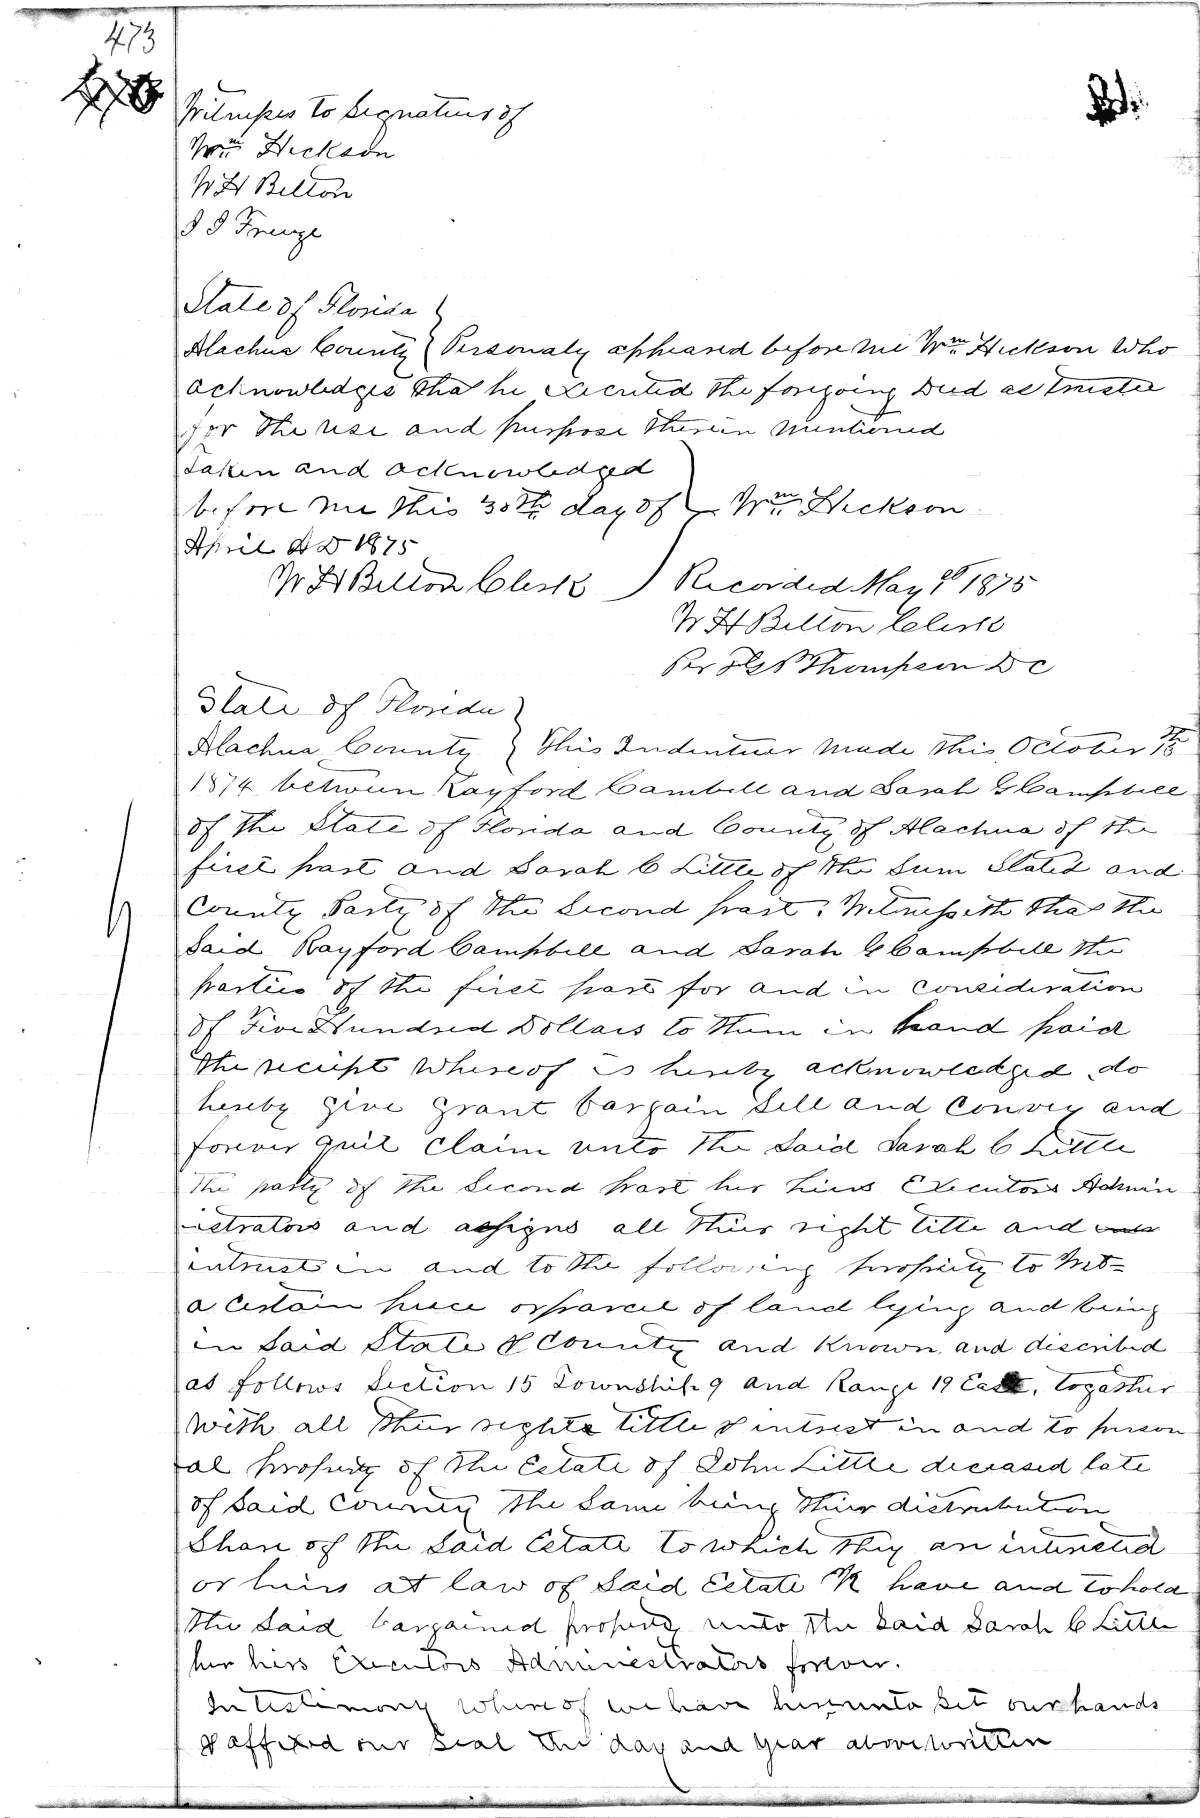 473
Witnesses to Signature of
Wm Hickson
W H Belton
State of Florida
Alachua County } Personaly appeared before me Wm Hickson Who
acknowledges that he executed the foregoing Deed as trustee
for the use and purpose therein mentioned
Taken and acknowledged
before me this 30th day of } Wm Hickson
April A D 1875
W H Belton Clerk
Recorded May 1st 1875
W H Belton Clerk
Per Thompson D C
State of Florida
Alachua County } This Indenture made this October 13th
1874 between Rayford Cambell and Sarah G Campbell
of the State of Florida and County of Alachua of the
first part and Sarah C Little of the Sum Stated and
County Party of the Second part: Witnesseth that the
Said Rayford Campbell and Sarah G Campbell the
parties of the first part for and in consideration
of Five Hundred Dollars to them in hand paid
the reciept whereof is hereby acknowledged do
hereby give grant bargain Sell and convey and
forever quit claim unto the Said Sarah C Little
the party of the Second part her hiers Executors Admin
istrators and assigns all thier right title and
intrest in and to the following propirty to wit=
a certain piece or parcel of land lying and being
in Said State & County and known and discribed
as follows Section 15 Township 9 and Range 19 East, togather
with all thier rights tittle & intrest in and to person
al propirty of the Estate of John Little deceased late
of Said County the Same being thier distrubution
Share of the Said Estate to which they are intrusted
or hiers at law of Said Estate To have and to hold
the Said bargained property unto the Said Sarah C Little
her hiers Executors Administrators forever.
In testimony where of we have hereunto Set our hands
& affixed our Seal the day and year above written